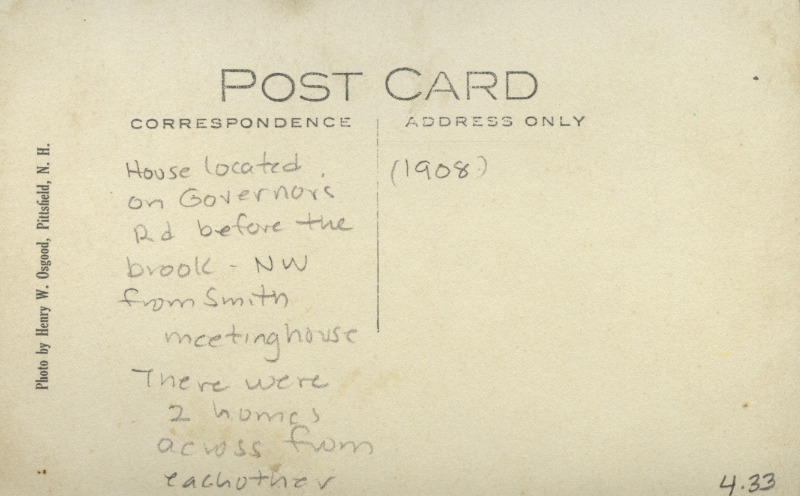 POST CARD
CORRESPONDENCE
ADDRESS ONLY
House located
on Governors
Rd before the
brook - NW
from Smith
meetinghouse
There were
2 homes
across from
eachother
(1908)
Photo by Henry W. Osgood, Pittsfield, N. H.
4.33